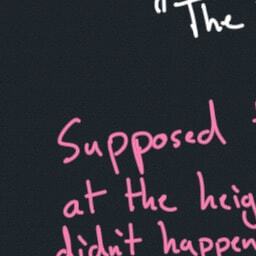 "The
Supposed
at the heig
didn't happen